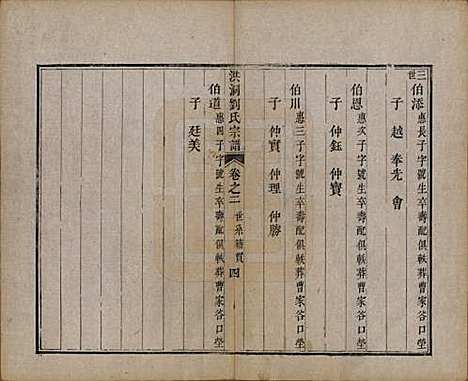 三世
伯添惠長子字號生卒壽配俱軼葬曹家谷口塋
子 越 奉先 會
伯恩惠次子字號生卒壽配俱軼葬曹家谷口塋
子 仲鈺 仲寶
伯川惠三子字號生卒壽配俱軼葬曹家谷口塋
子 仲實 仲理 仲勝
洪洞劉氏宗譜 卷之二 世系 四
伯道惠四子字號生卒壽配俱軼葬曹家谷口塋
子 廷美